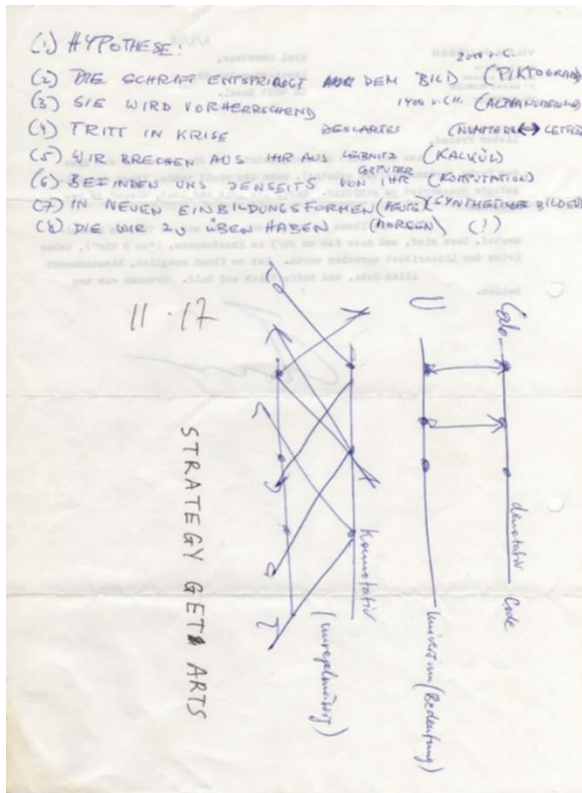 (1) HYPOTHESE:
2000 v.C.
(2) DIE SCHRIFT ENTSPRINGT AUS DEM BILD (PIKTOGRAM)
(3) SIE WIRD VORHERRSCHEND 1400 v.CH.
(4) TRITT IN KRISE DESCARTES (NUMMERN ↔ LETTERN)
(5) WIR BRECHEN AUS IHR AUS LEIBNITZ (KALKÜL)
(6) BEFINDEN UNS JENSEITS VON IHR COMPUTER (KOMPUTATION)
(7) IN NEUEN EINBILDUNGSFORMEN (HEUTE) (SYNTHETISCHE BILDER)
(8) DIE WIR ZU ÜBEN HABEN (MORGEN) (!)
11.17
U
denotativ
Code
Universum (Bedeutung)
konnotativ
(unregelmässig)
STRATEGY GET ARTS